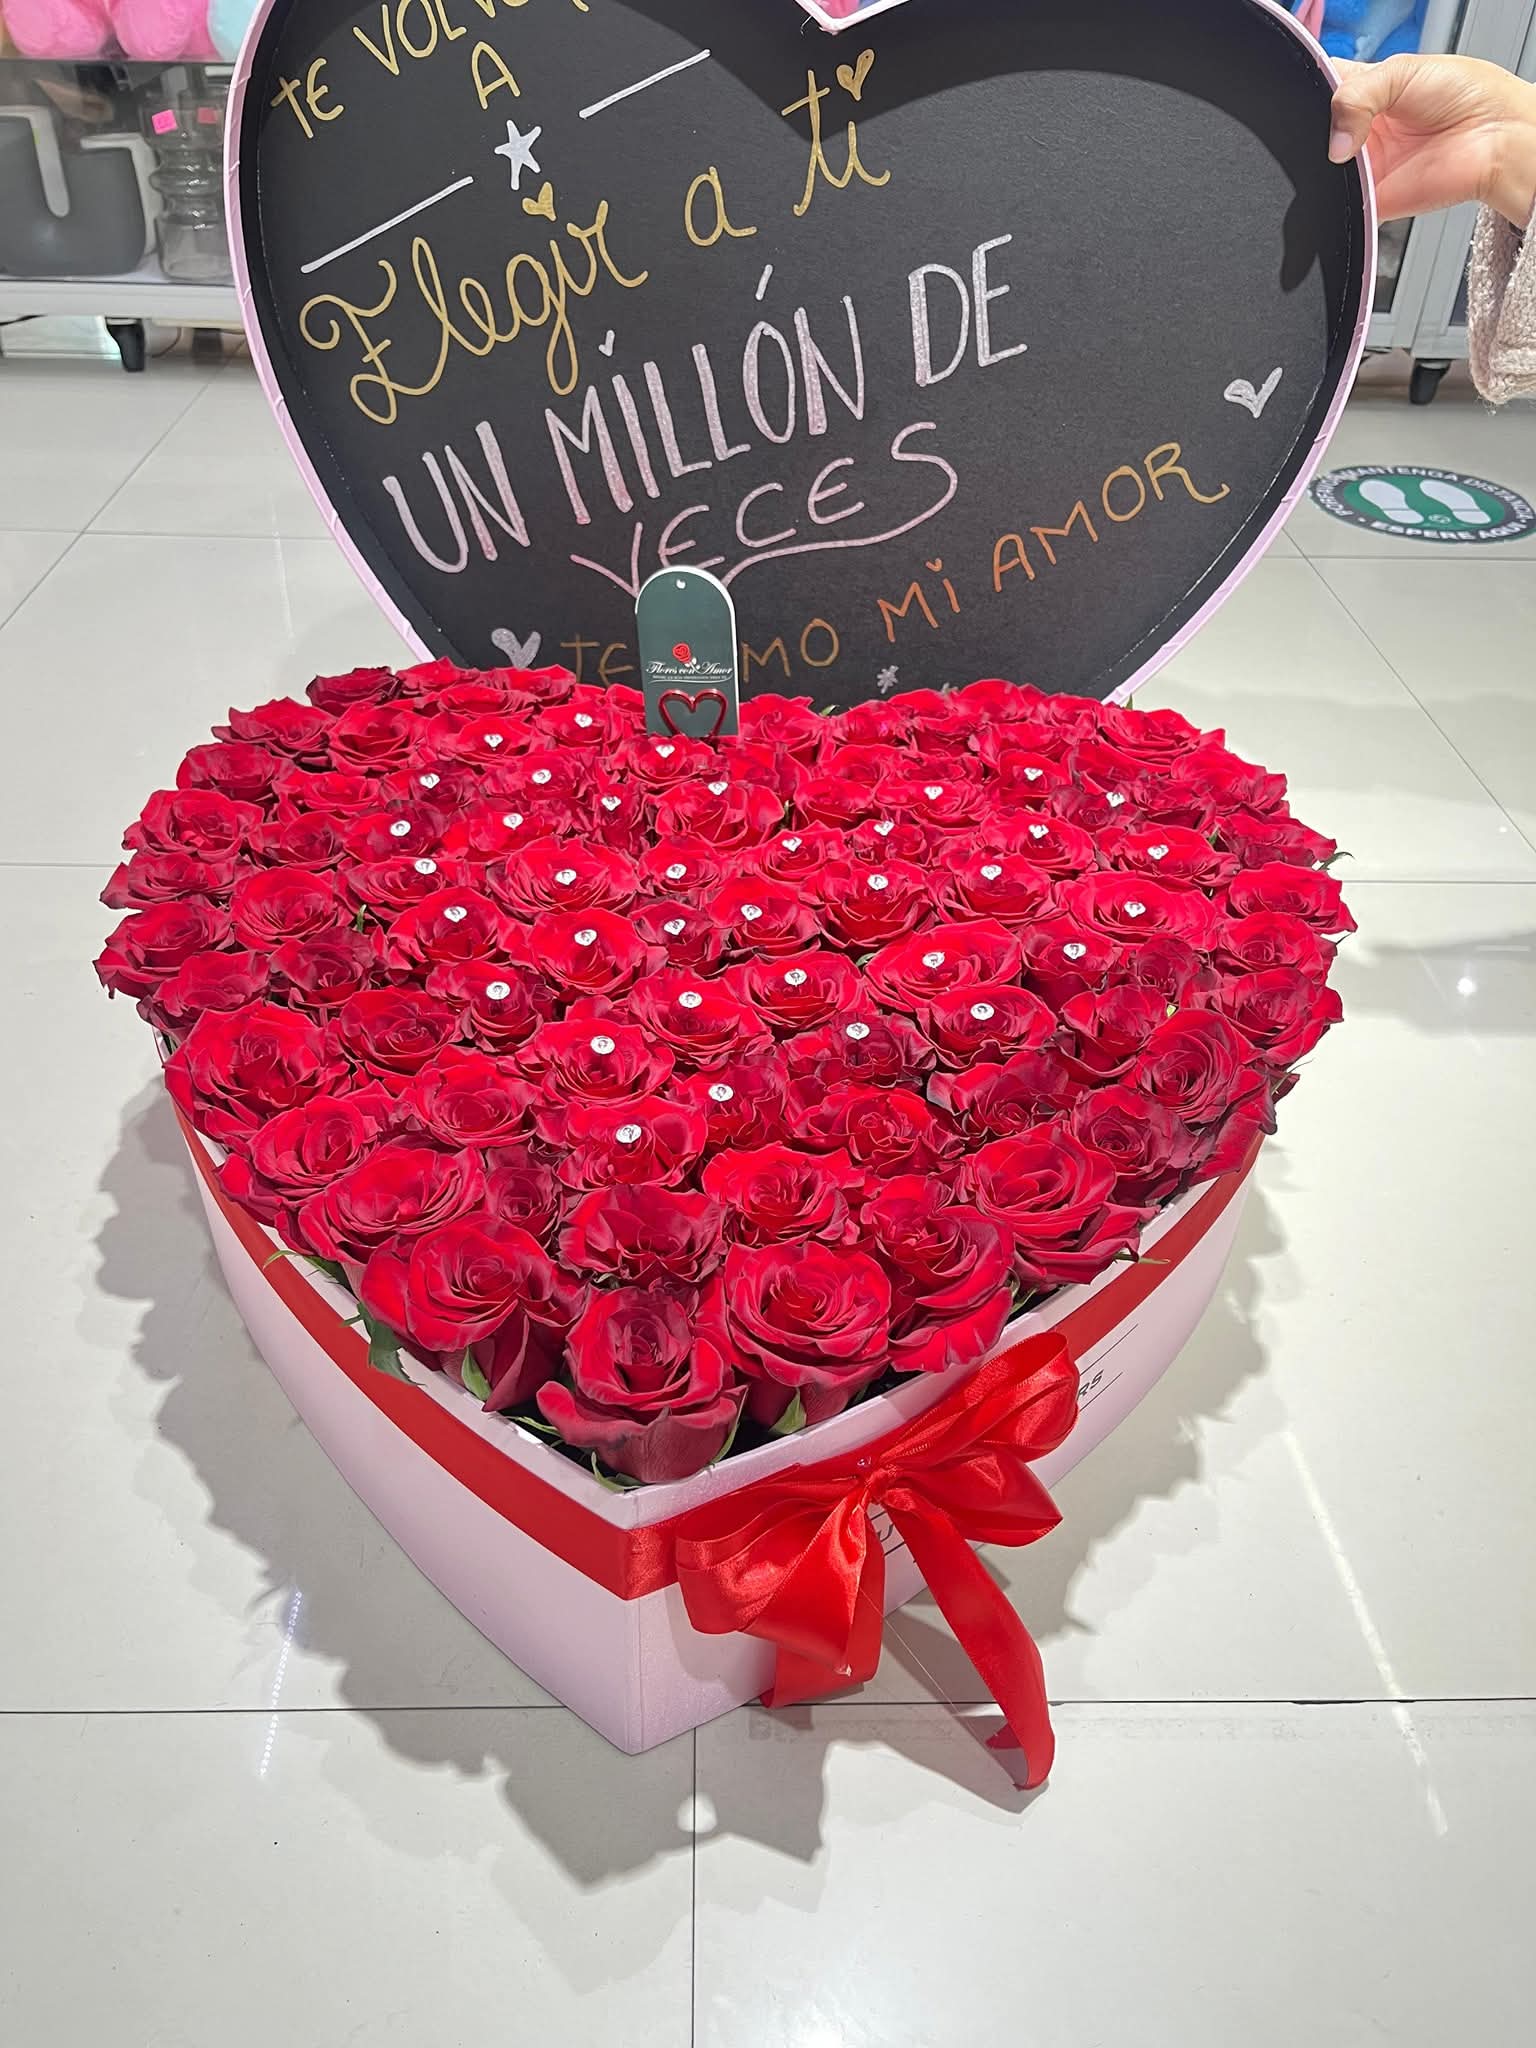 TE
A
Elegir a ti
UN MILLÓN DE
VECES
TE AMO MI AMOR
Flores con Amor
POR FAVOR MANTENGA DISTANCIA
ESPERE AQUI
RS